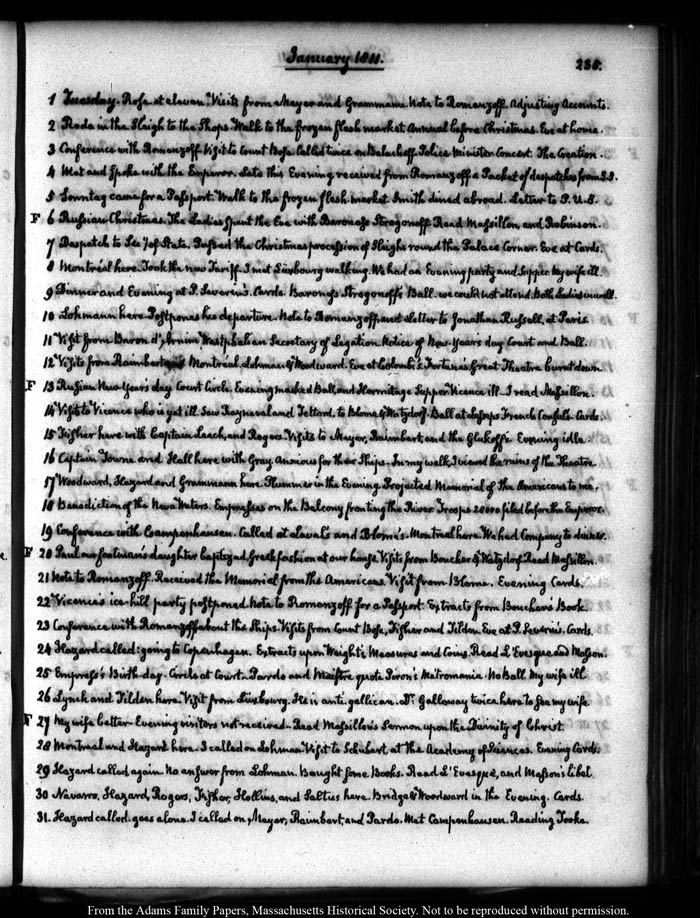 January 1811.
235.
1 Tuesday. Rose at eleven. Visits from Meyer and Grammann. Note to Romanzoff. Adjusting Accounts.
2 Rode in the Sleigh to the Shops. Walk to the frozen flesh market. Annual before Christmas. Eve at home.
3 Conference with Romanzoff. Visit to Count Bose. Called twice on Balachoff. Police Minister. Concert. The Creation.
4 Met and Spoke with the Emperor. Late this Evening received from Romanzoff a Packet of despatches from
5 Sonntag came for a Passport. Walk to the frozen flesh-market. Smith dined abroad. Letter to P. U.S.
F 6 Russian Christmas. The Ladies Spent the Eve with Baroness Strogonoff. Read Massillon and Robinson.
7 Despatch to Sec. of State. Passed the Christmas procession of Sleighs round the Palace Corner. Eve at Cards.
8 Montréal here. Took the new Tariff. I met Luxbourg walking. We had an Evening party and Supper. My wife ill.
9 Dinner and Evening at P. Severin's. Cards. Baroness Strogonoff's Ball. we could not attend. Both Ladies unwell.
10 Lohmann here. Postpones his departure. Note to Romanzoff, and Letter to Jonathan Russell, at Paris.
11 Visit from Baron d'Arnim Westphalian Secretary of Legation. Notice of New-Years day Court and Ball.
12 Visits from Raimbert Montréal, Lohman & Woodward. Eve at Colombi's. Fortune. Great Theatre burnt down.
F 13 Russian New-Years day. Court Circle. Evening masked Ball and Hermitage Supper. Vicence ill. I read Massillon.
14 Visit to Vicence who is yet ill. Saw Rayneval and to Blome & Watzdorf. Ball at Lesseps French Consul's. Cards.
15 Fisher here with Captain Leach, and Rogers. Visits to Meyer, Raimbert, and the Evening idle.
16 Captain Towne and Hall here with Gray. Anxious for their Ships. In my walk, I viewed the ruins of the Theatre.
17 Woodward, Hazard and Grammann here. Plummer in the Evening. Projected Memorial of the Americans to me.
18 Benediction of the Neva Waters. Empresses on the Balcony fronting the River. Troops 28000 filed before the Emperor.
19 Conference with Campenhausen. Called at Laval's and Blome's. Montreal here. We had Company to dinner.
F 20 Paul our footman's daughter baptized, Greek fashion at our house. Visits from Boucher & Watzdorf. Read Massillon.
21 Note to Romanzoff. Received the Memorial from the Americans. Visit from Blome. Evening Cards.
22 Vicence's ice-hill party postponed. Note to Romanzoff for a Passport. Extracts from Boucher's Book.
23 Conference with Romanzoff about the Ships. Visits from Count Bose, Fisher and Tilden. Eve at P. Severin's. Cards.
24 Hazard called: going to Copenhagen. Extracts upon Weights, Measures and Coins. Read L'Evesque and Masson.
25 Empress's Birth-day. Circle at Court. Pardo and Maistre quote Piron's Metromania. No Ball. My wife ill
26 Lynch and Tilden here. Visit from Luxbourg. He is anti-gallican. Dr. Galloway twice here to see my wife
F 27 My wife better. Evening visitors not received. Read Massillon's Sermon upon the Divinity of Christ.
28 Montreal and Hazard here. I called on Lohman. Visit to Schubert, at the Academy of Sciences. Evening Cards.
29 Hazard called again. No answer from Lohman. Bought some Books. Read L'Evesque, and Masson's libel.
30 Navarro, Hazard, Rogers, Fisher, Hollins, and here. Bridge & Woodward in the Evening. Cards.
31. Hazard called. goes alone. I called on, Meyer, Raimbert, and Pardo. Met Campenhausen. Reading Tooke.
From the Adams Family Papers, Massachusetts Historical Society. Not to be reproduced without permission.